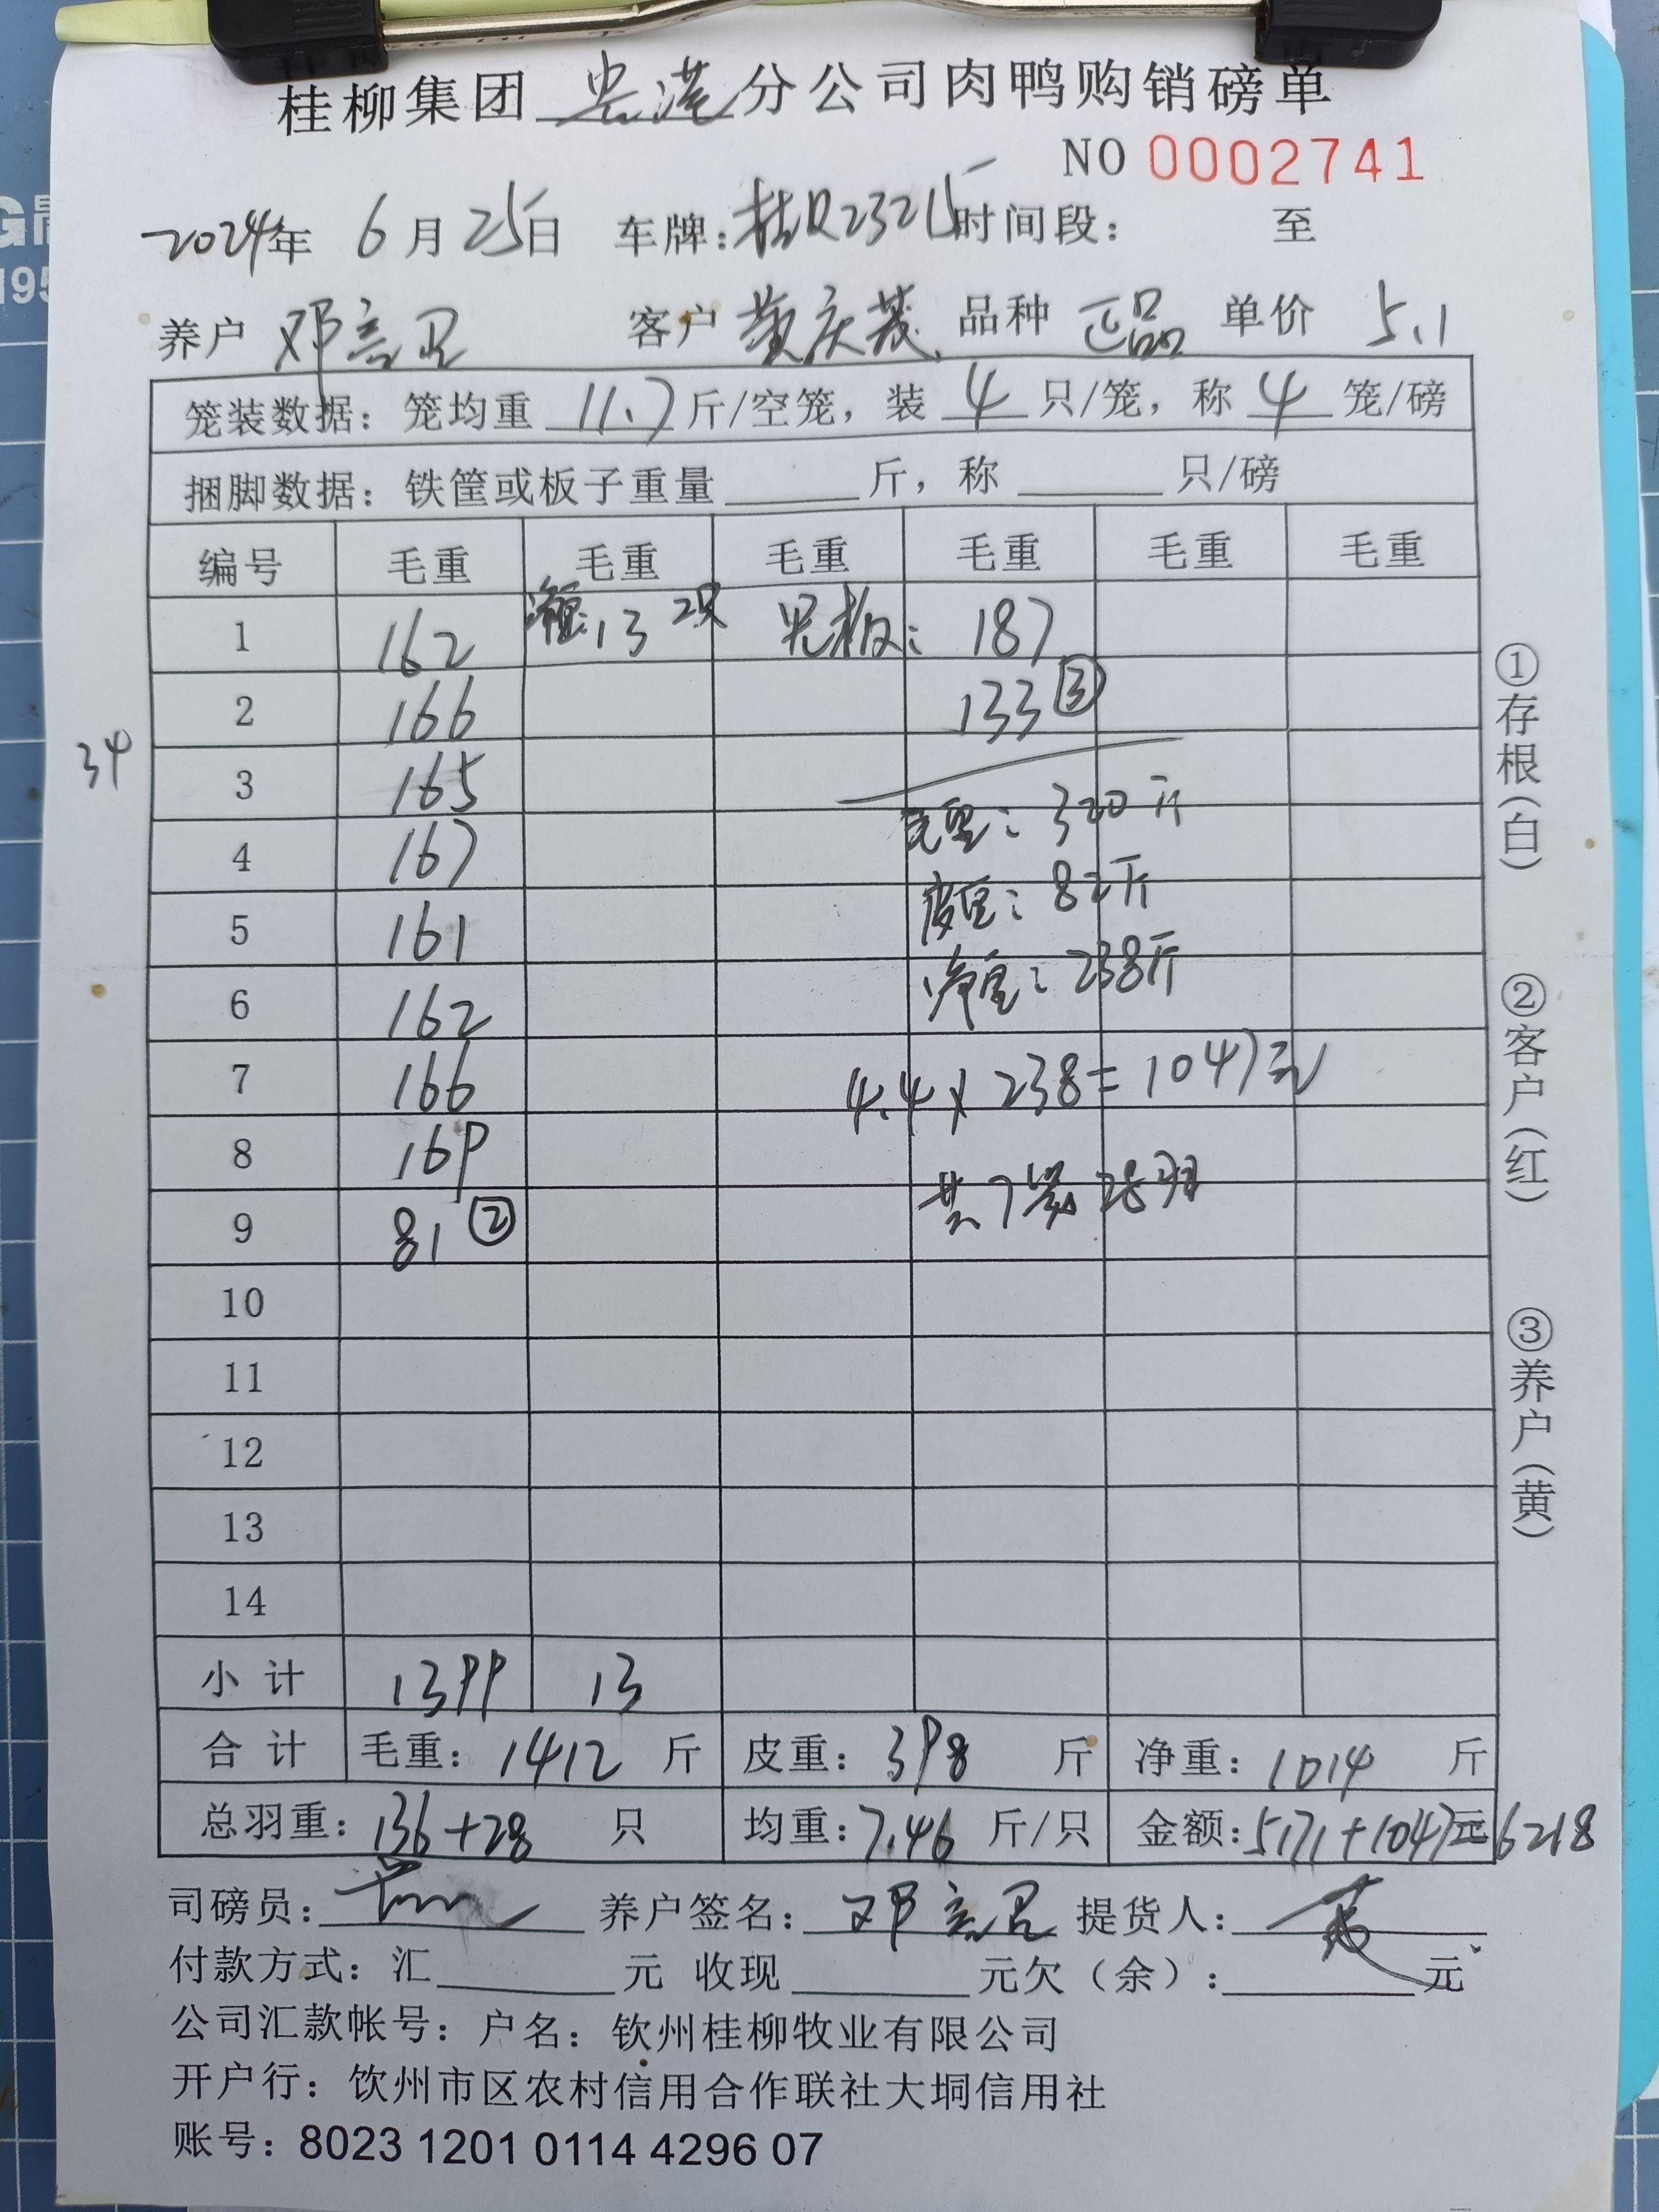 桂柳集团 贵港 分公司肉鸭购销磅单
NO 0002741
2024年 6月25日 车牌:桂R23215 时间段: 至
养户 邓 客户 黄庆茂 品种 正品 单价 5.1
笼装数据: 笼均重 11.7 斤/空笼, 装 4 只/笼, 称 4 笼/磅
捆脚数据: 铁筐或板子重量 斤, 称 只/磅
编号 毛重 毛重 毛重 毛重 毛重 毛重
1 162 净重:13 2只 毛板: 187
2 166 133 ③
34
3 165 毛重: 320斤
4 167
5 161 皮重: 82斤
6 162 净重: 238斤
7 166 4.4 x 238 = 1047元
8 169
9 81 ② 共7笼 28羽
10
11
12
13
14
小计 1399 13
合计 毛重: 1412 斤 皮重: 398 斤 净重: 1014 斤
总羽重: 136+28 只 均重: 7.46 斤/只 金额: 5171+1047元 6218
司磅员: 养户签名: 邓 提货人:
付款方式: 汇 元 收现 元欠(余): 元
公司汇款帐号: 户名: 钦州桂柳牧业有限公司
开户行: 钦州市区农村信用合作联社大垌信用社
账号: 8023 1201 0114 4296 07
①存根(白)
②客户(红)
③养户(黄)